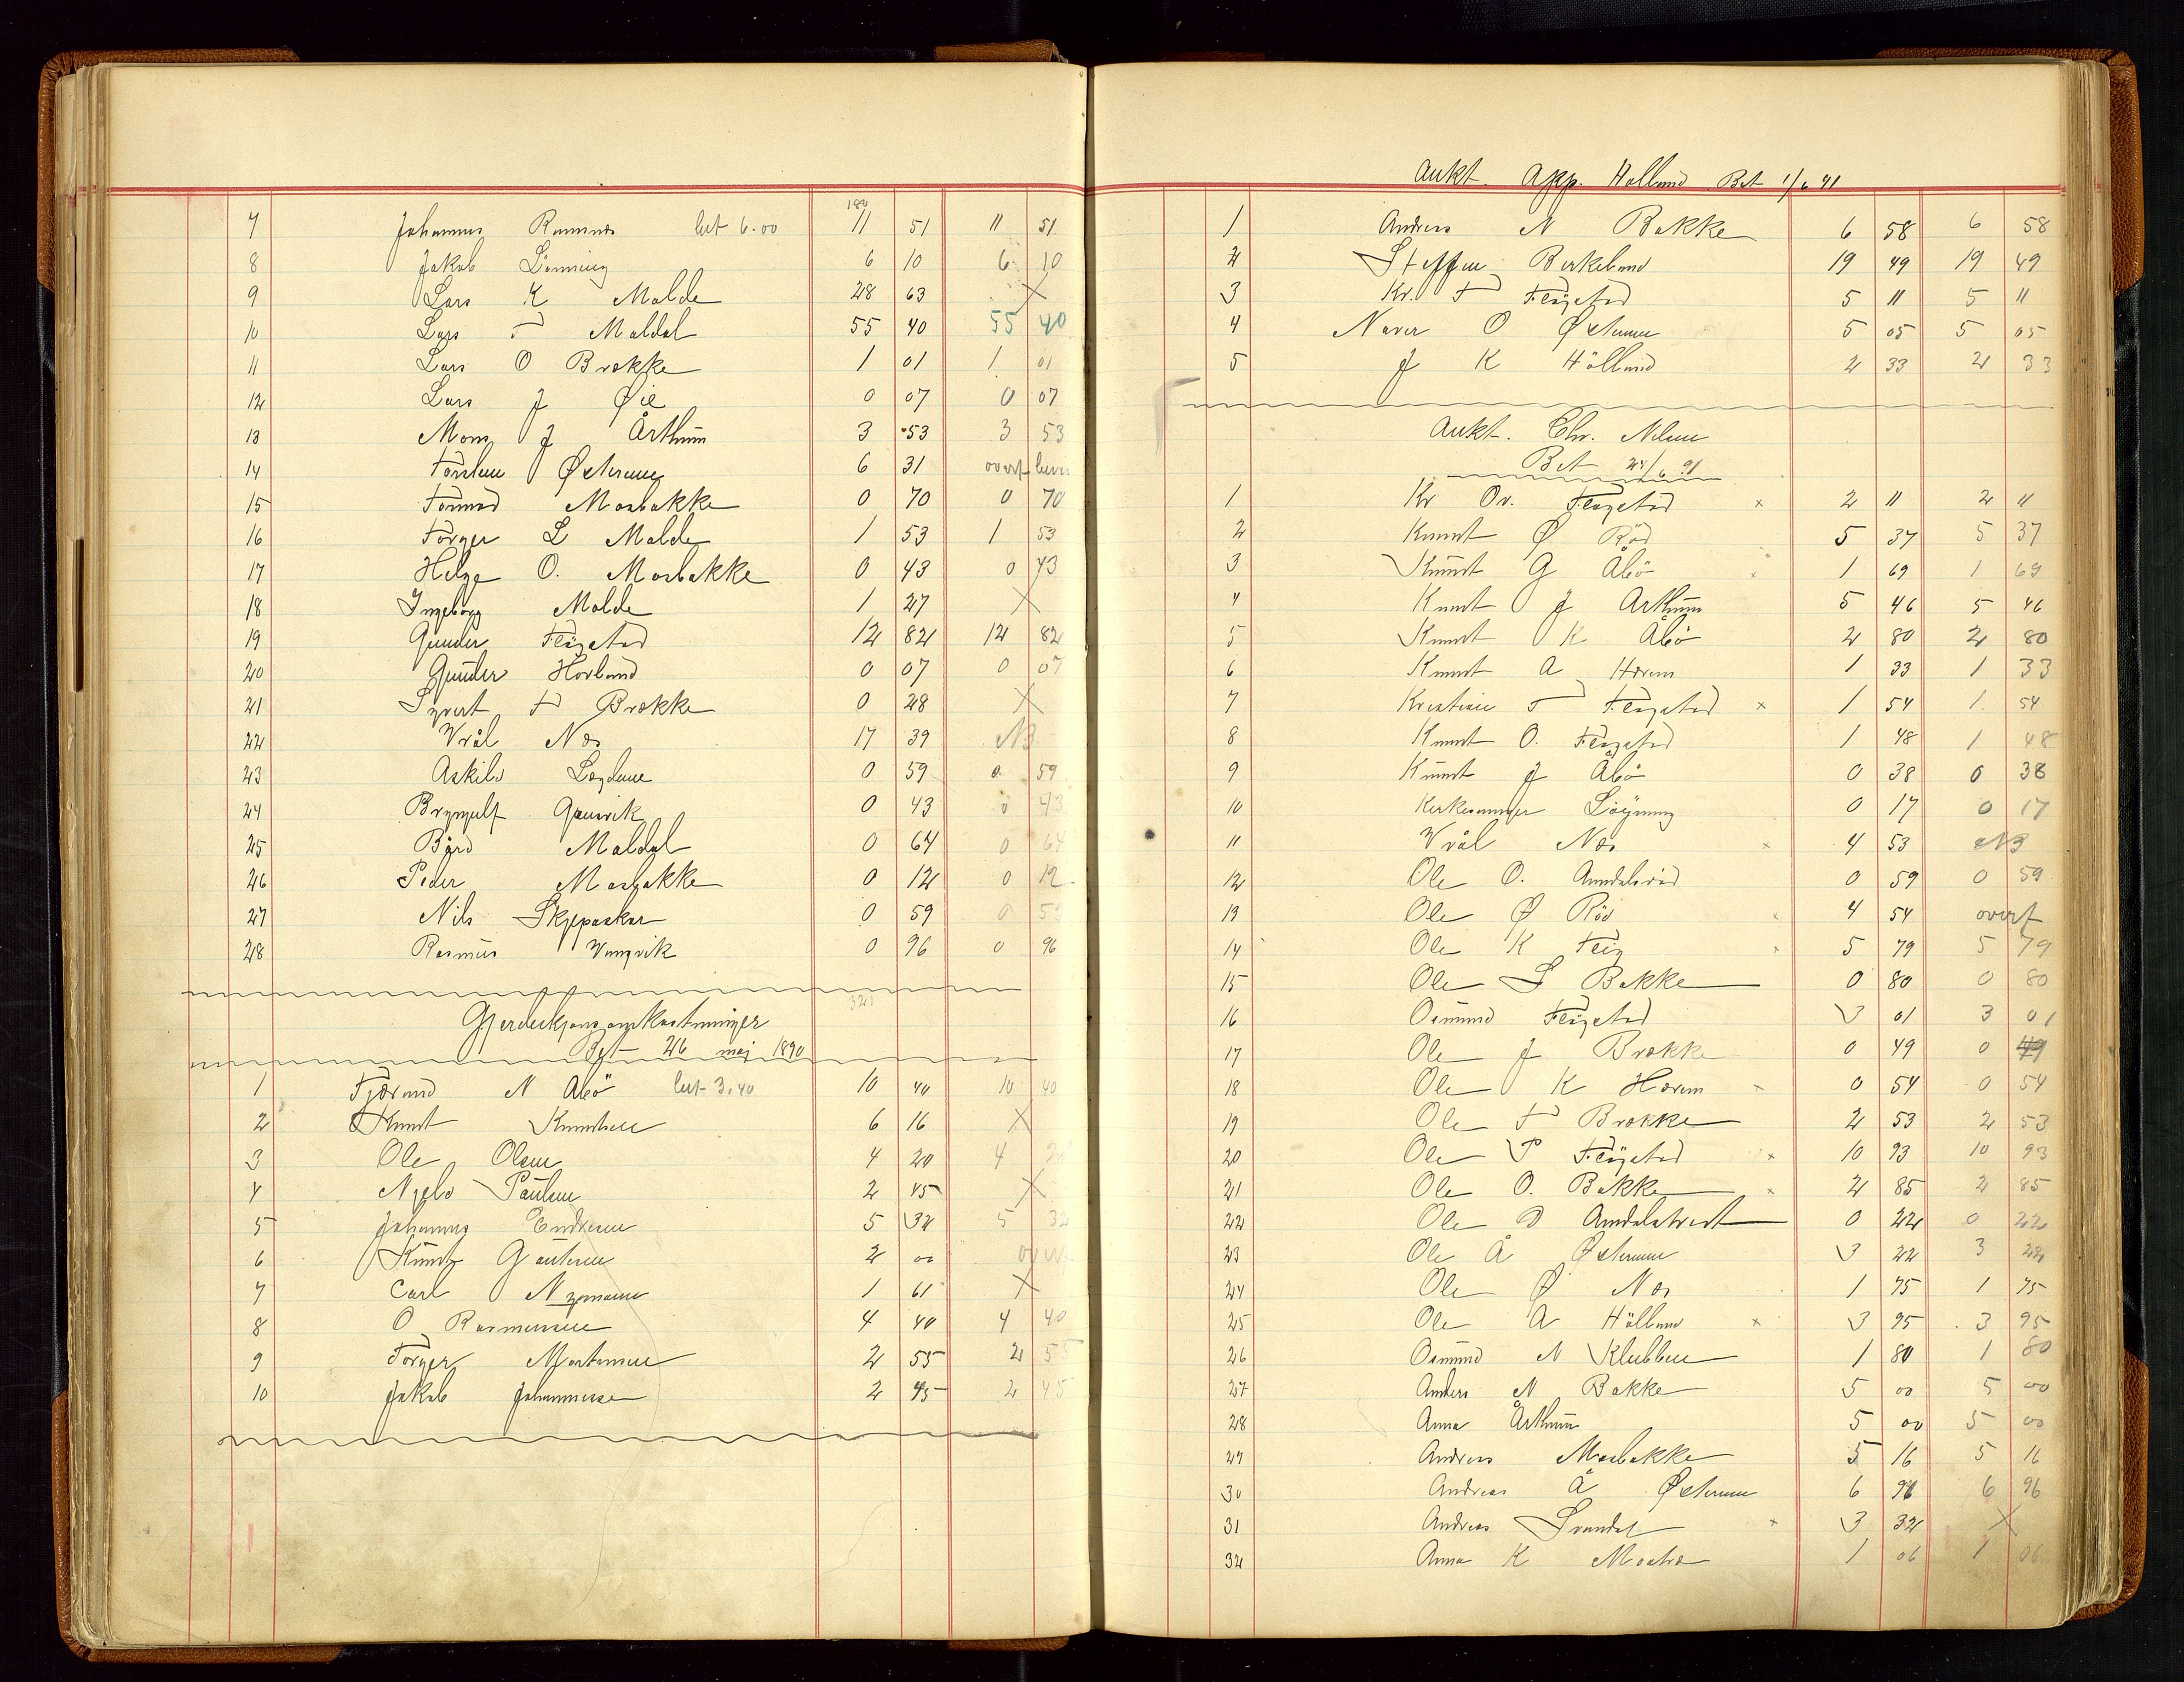 180
7 Johannes Rasmus bet 6.00 11 51 11 51
8 Jakob Lönning 6 10 6 10
9 Lars K Malde 28 63 X
10 Lars T Maldal 55 40 55 40
11 Lars O Brække 1 01 1 01
12 Lars J Øie 0 07 0 07
13 Mons J Årthun 3 53 3 53
14 Torsten Østerene 6 31 overf
15 Tormod Mosbakke 0 70 0 70
16 Törger L Malde 1 53 1 53
17 Helge O. Mosbakke 0 43 0 43
18 Ingeborg Malde 1 27 X
19 Gunder Fløgstad 12 82 12 82
20 Gunder Hovland 0 07 0 07
21 Syvert T Brække 0 28 X
22 Vrål Næs 17 39 NB
23 Askild 0 59 0 59
24 Brynjulf Gauvik 0 43 0 43
25 Bård Maldal 0 64 0 64
26 Peder Mosbakke 0 12 0 12
27 Nils Skjepaskar 0 59 0 59
28 Rasmus Vangvik 0 96 0 96
321
Bet 26 maj 1890
1 Tjærand N Åbö bet 3.40 10 40 10 40
2 Knut Knutsen 6 16 X
3 Ole Olsen 4 20 4 20
4 Njeld Paulsen 2 45 X
5 Johannes Endresen 5 32 5 32
6 Knut Gautesen 2 00 overf
7 Carl Nymann 1 61 X
8 O Rasmussen 4 40 4 40
9 Törger Mortensen 2 55 2 55
10 Jakob Johannessen 2 45 2 45
Aukt. App. Hölland Bet 1/6 91
1 Andreas N Bakke 6 58 6 58
2 Steffen Birkeland 19 49 19 49
3 Kr. T Fløgstad 5 11 5 11
4 O Østerene 5 05 5 05
5 J K Hölland 2 33 2 33
Aukt. Chr. Nilsen
Bet 28/6 91
1 Kr Ov. Fløgstad x 2 11 2 11
2 Knut Ø Röd 5 37 5 37
3 Knut G Åbö 1 69 1 69
4 Knut J Årthun 5 46 5 46
5 Knut K Åbö 2 80 2 80
6 Knut A Hærem 1 33 1 33
7 Kristian T Fløgstad x 1 54 1 54
8 Knut O. Fløgstad 1 48 1 48
9 Knut J Åbö 0 38 0 38
10 Kirkesanger 0 17 0 17
11 Vrål Næs x 4 53 NB
12 Ole O. 0 59 0 59
13 Ole Ø Röd x 4 54 overf
14 Ole K x 5 79 5 79
15 Ole S Bakke 0 80 0 80
16 Osmund Fløgstad 3 01 3 01
17 Ole J Brække 0 49 0 49
18 Ole K Hærem x 0 54 0 54
19 Ole T Brække 2 53 2 53
20 Ole P Fløgstad x 10 93 10 93
21 Ole O. Bakke x 2 85 2 85
22 Ole D 0 22 0 22
23 Ole Å Østerene 3 22 3 22
24 Ole Ø Næs 1 75 1 75
25 Ole A Hölland x 3 95 3 95
26 Osmund N Klubben 1 80 1 80
27 Anders N Bakke 5 00 5 00
28 Anna Årthun 5 00 5 00
29 Andreas Mosbakke 5 16 5 16
30 Andreas Å Østerene 6 96 6 96
31 Andreas Svandal x 3 32 X
32 Anna K 1 06 1 06